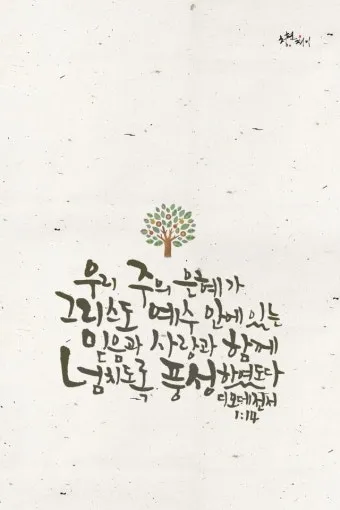 우리 주의 은혜가
그리스도 예수 안에 있는
믿음과 사랑과 함께
넘치도록 풍성하였도다
디모데전서
1:14